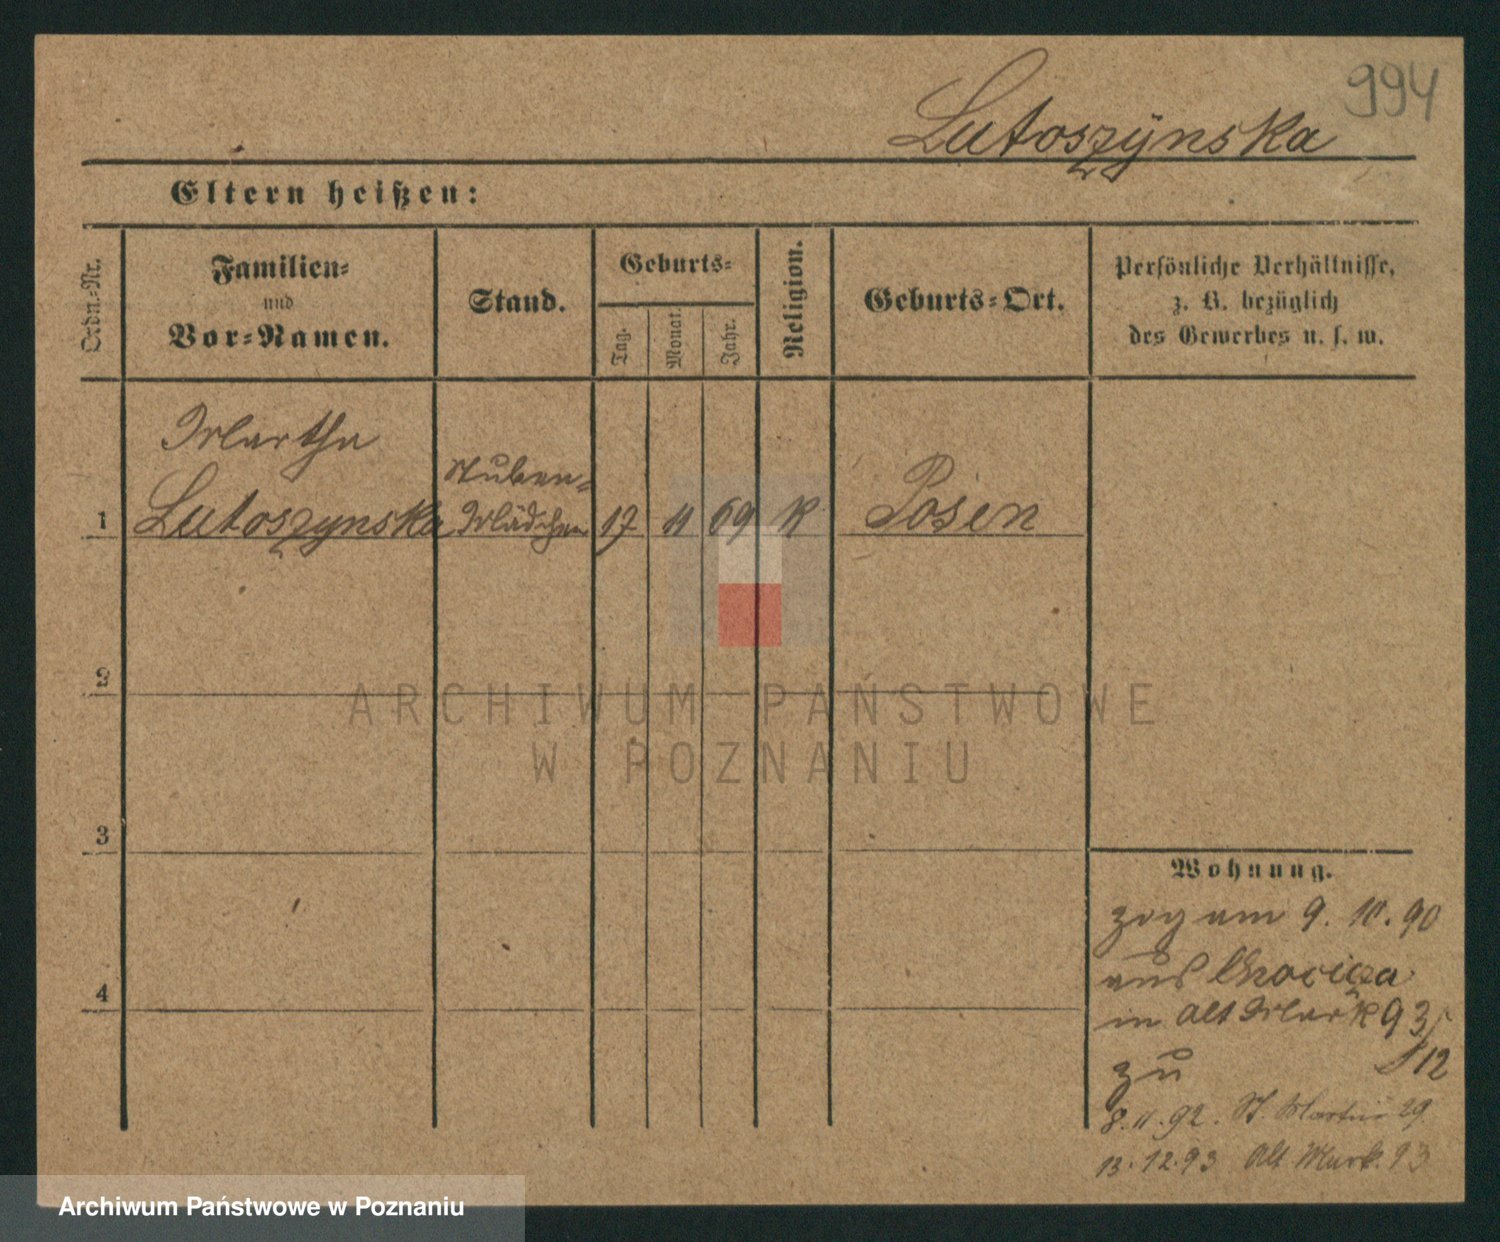 994
Lutoszÿnska
Eltern heißen:
Ordn.-Nr.
Familien-
und
Vor-Namen.
Stand.
Geburts-
Tag.
Monat.
Jahr.
Religion.
Geburts-Ort.
Persönliche Verhältnisse,
z. B. bezüglich
des Gewerbes u. s. w.
Martha
Stuben-
1 Lutoszynska Mädchen 17 11 69 K Posen
2
ARCHIWUM PAŃSTWOWE
W POZNANIU
3
4
Wohnung.
zog am 9. 10. 90
aus
in Alt Mark 93
zu 12
8. 11. 92. St. Martin 29
13. 12. 93 Alt Mark. 93
Archiwum Państwowe w Poznaniu